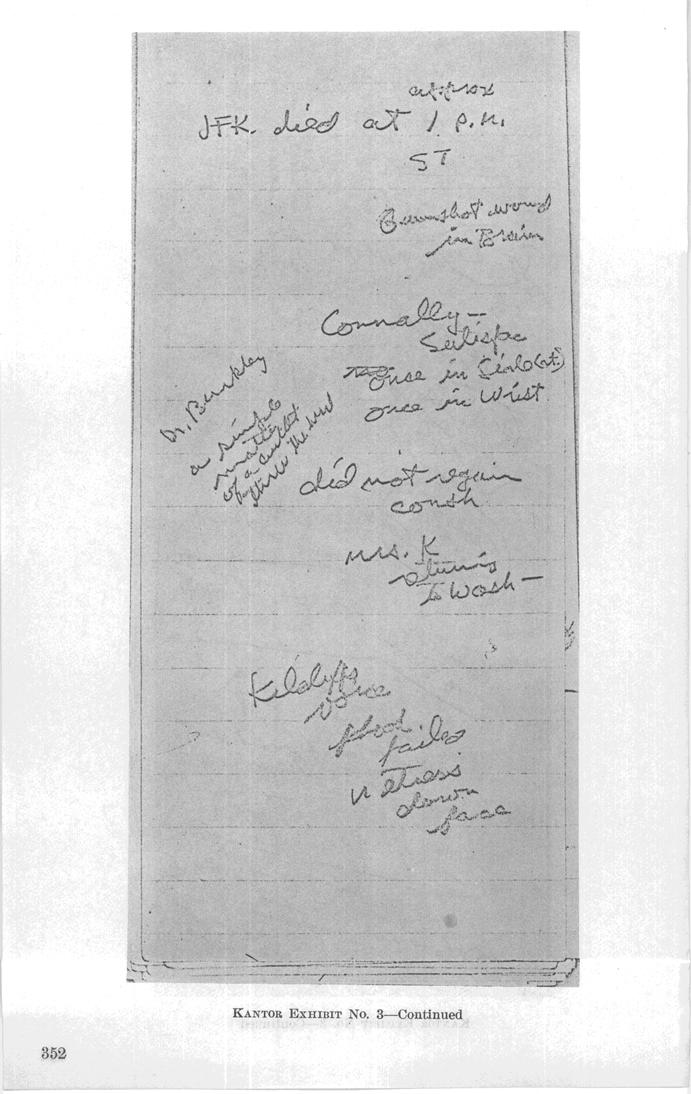 approx
JFK. died at 1 p.m.
ST
Gunshot wound
in Brain
Connally —
Satisfac
once in
once in Wrist
Dr. Burkley
a simple
matter
of a bullet
thru the head
did not regain
consh
Mrs. K
returning
to Wash —
Kilduff's
voice
failed
down
face
KANTOR EXHIBIT No. 3—Continued
352